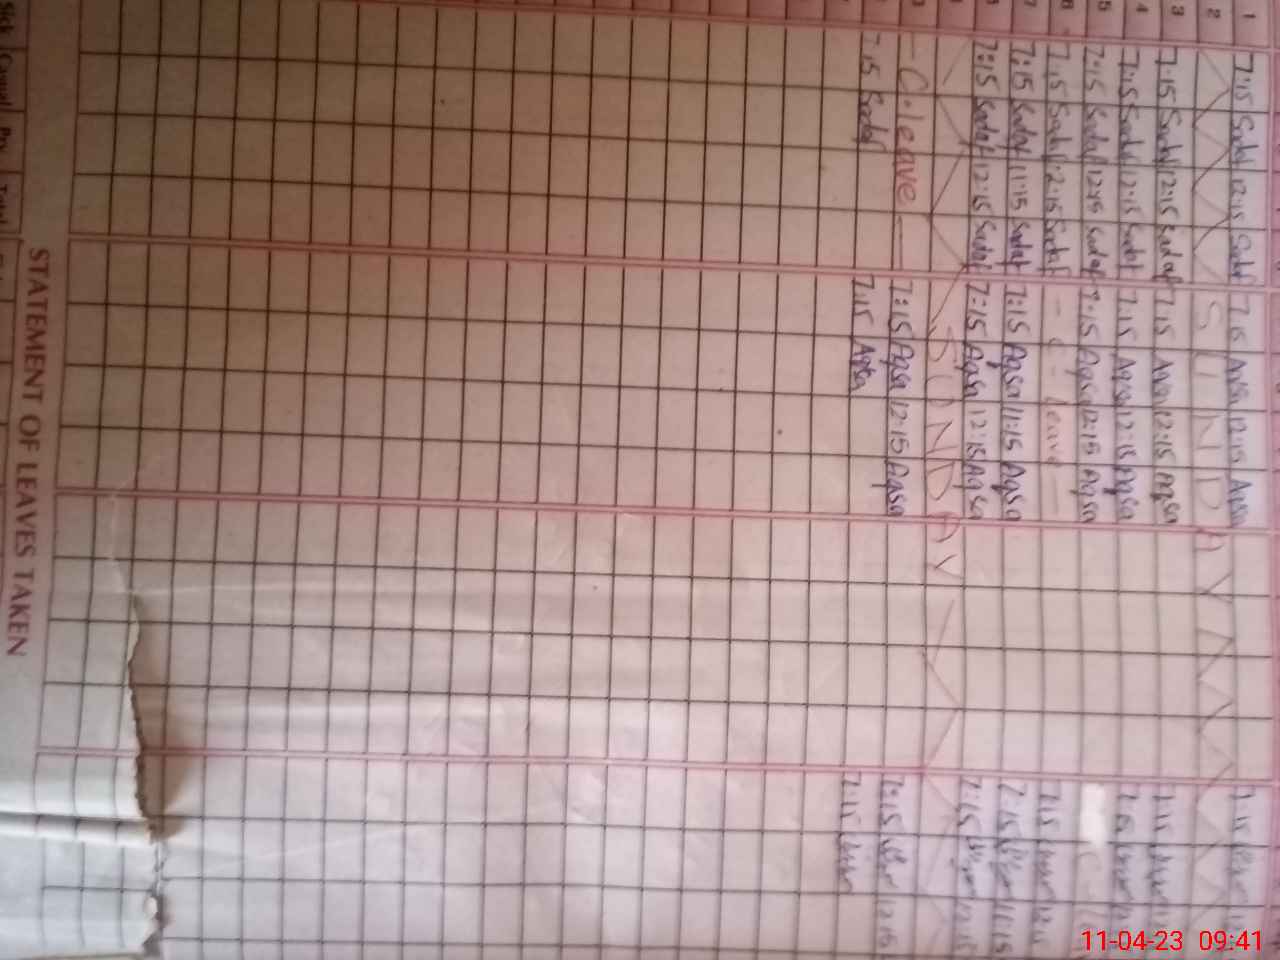 1 7:15 Sadaf 12:15 Sadaf 7:15 Aqsa 12:15 Aqsa 7:15
2 SUNDAY
3 7:15 Sadaf 12:15 Sadaf 7:15 Aqsa 12:15 Aqsa 7:15
4 7:15 Sadaf 12:15 Sadaf 7:15 Aqsa 12:15 Aqsa 7:15
5 7:15 Sadaf 12:15 Sadaf 7:15 Aqsa 12:15 Aqsa
6 7:15 Sadaf 12:15 Sadaf - C - leave - 7:15
7 7:15 Sadaf 11:15 Sadaf 7:15 Aqsa 11:15 Aqsa 7:15 11:15
8 7:15 Sadaf 12:15 Sadaf 7:15 Aqsa 12:15 Aqsa 7:15 12:15
SUNDAY
- C.leave - 7:15 Aqsa 12:15 Aqsa 7:15 12:15
7:15 Sadaf 7:15 Aqsa 7:15
STATEMENT OF LEAVES TAKEN
Sick Casual Prv. Total
11-04-23 09:41